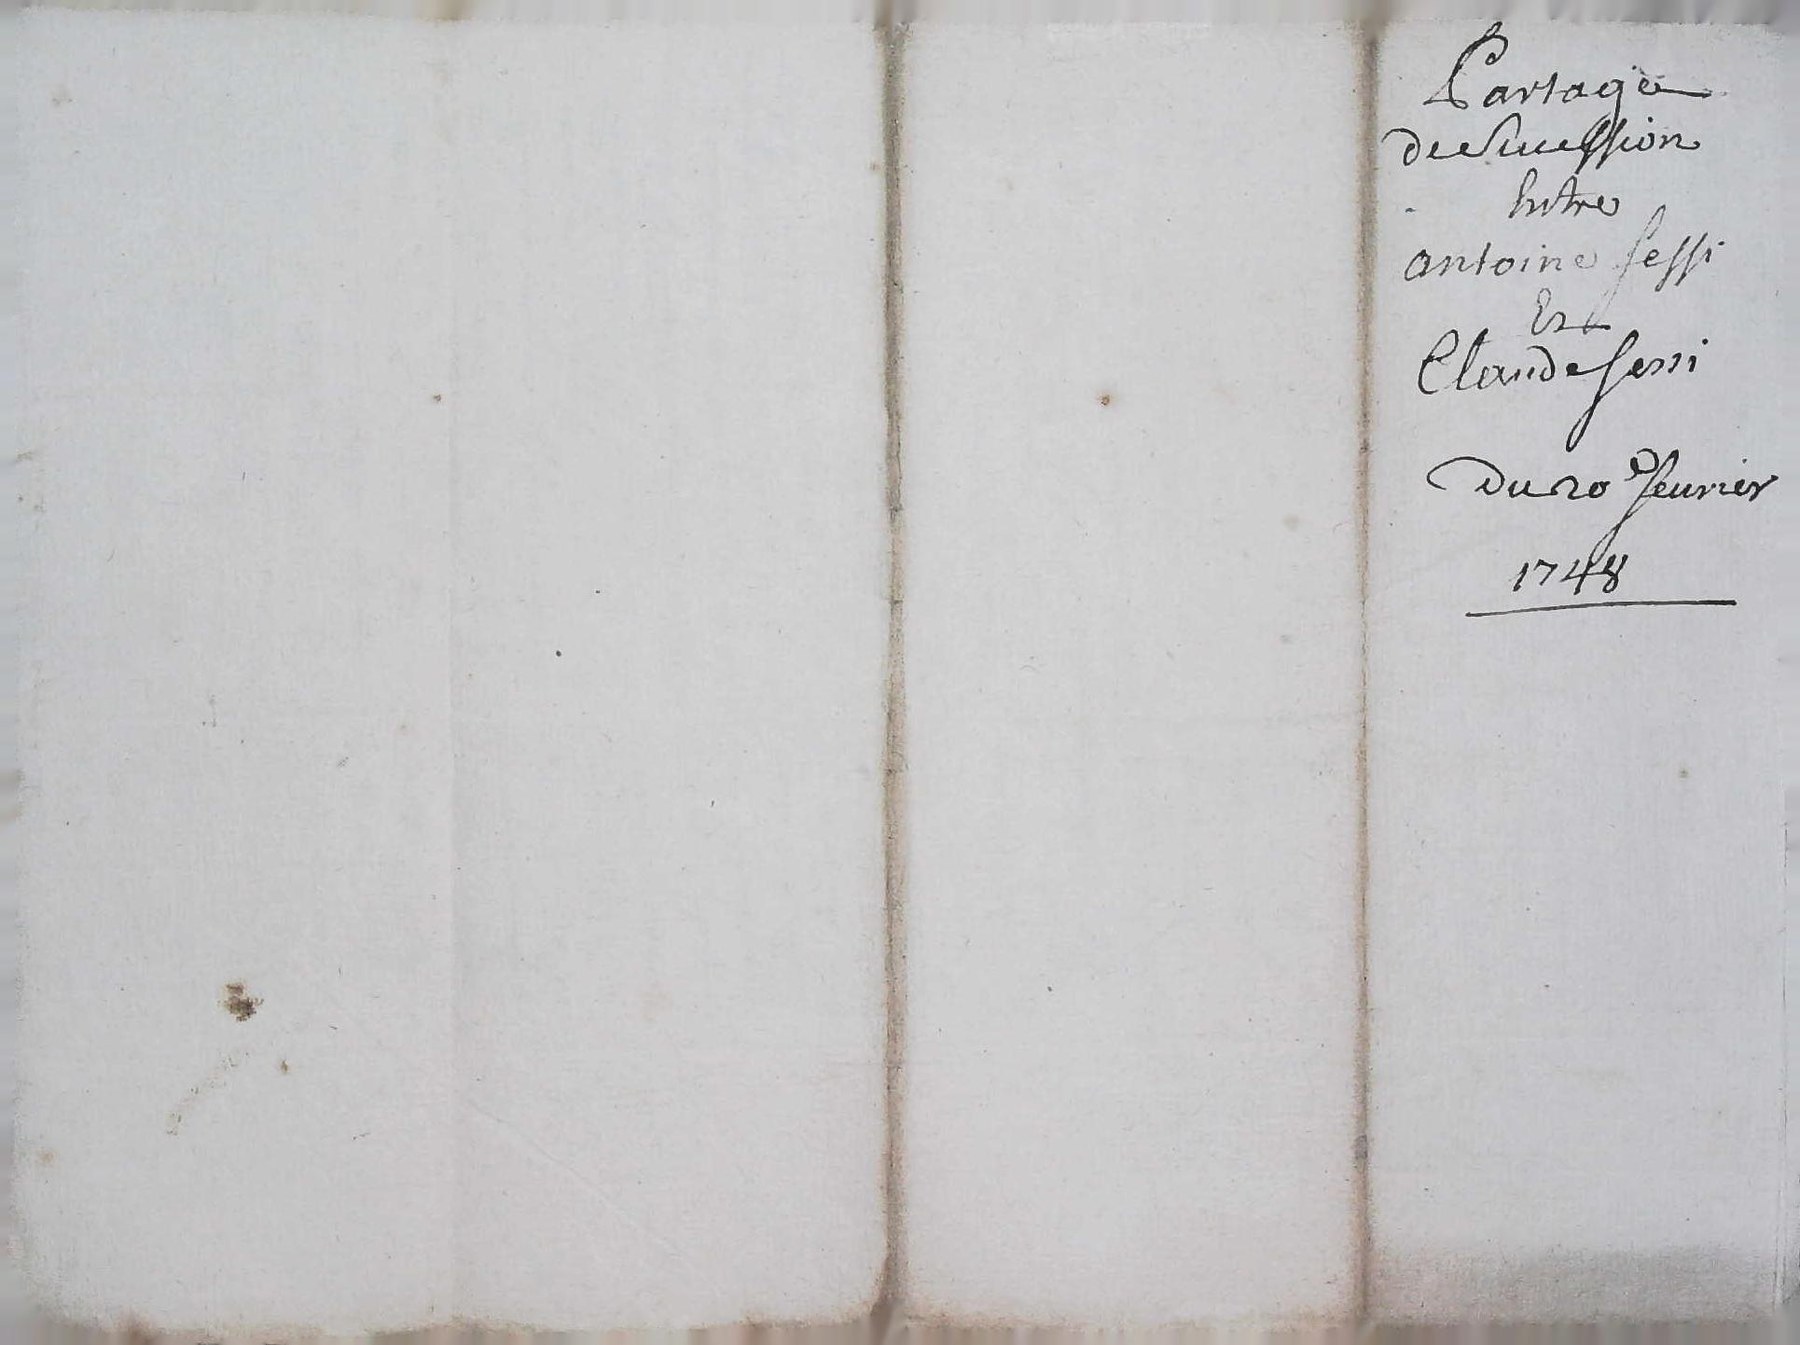 Partage
de Sucession
Entre
antoine fessi
Et
Claude fessi
Du 20e feurier
1748